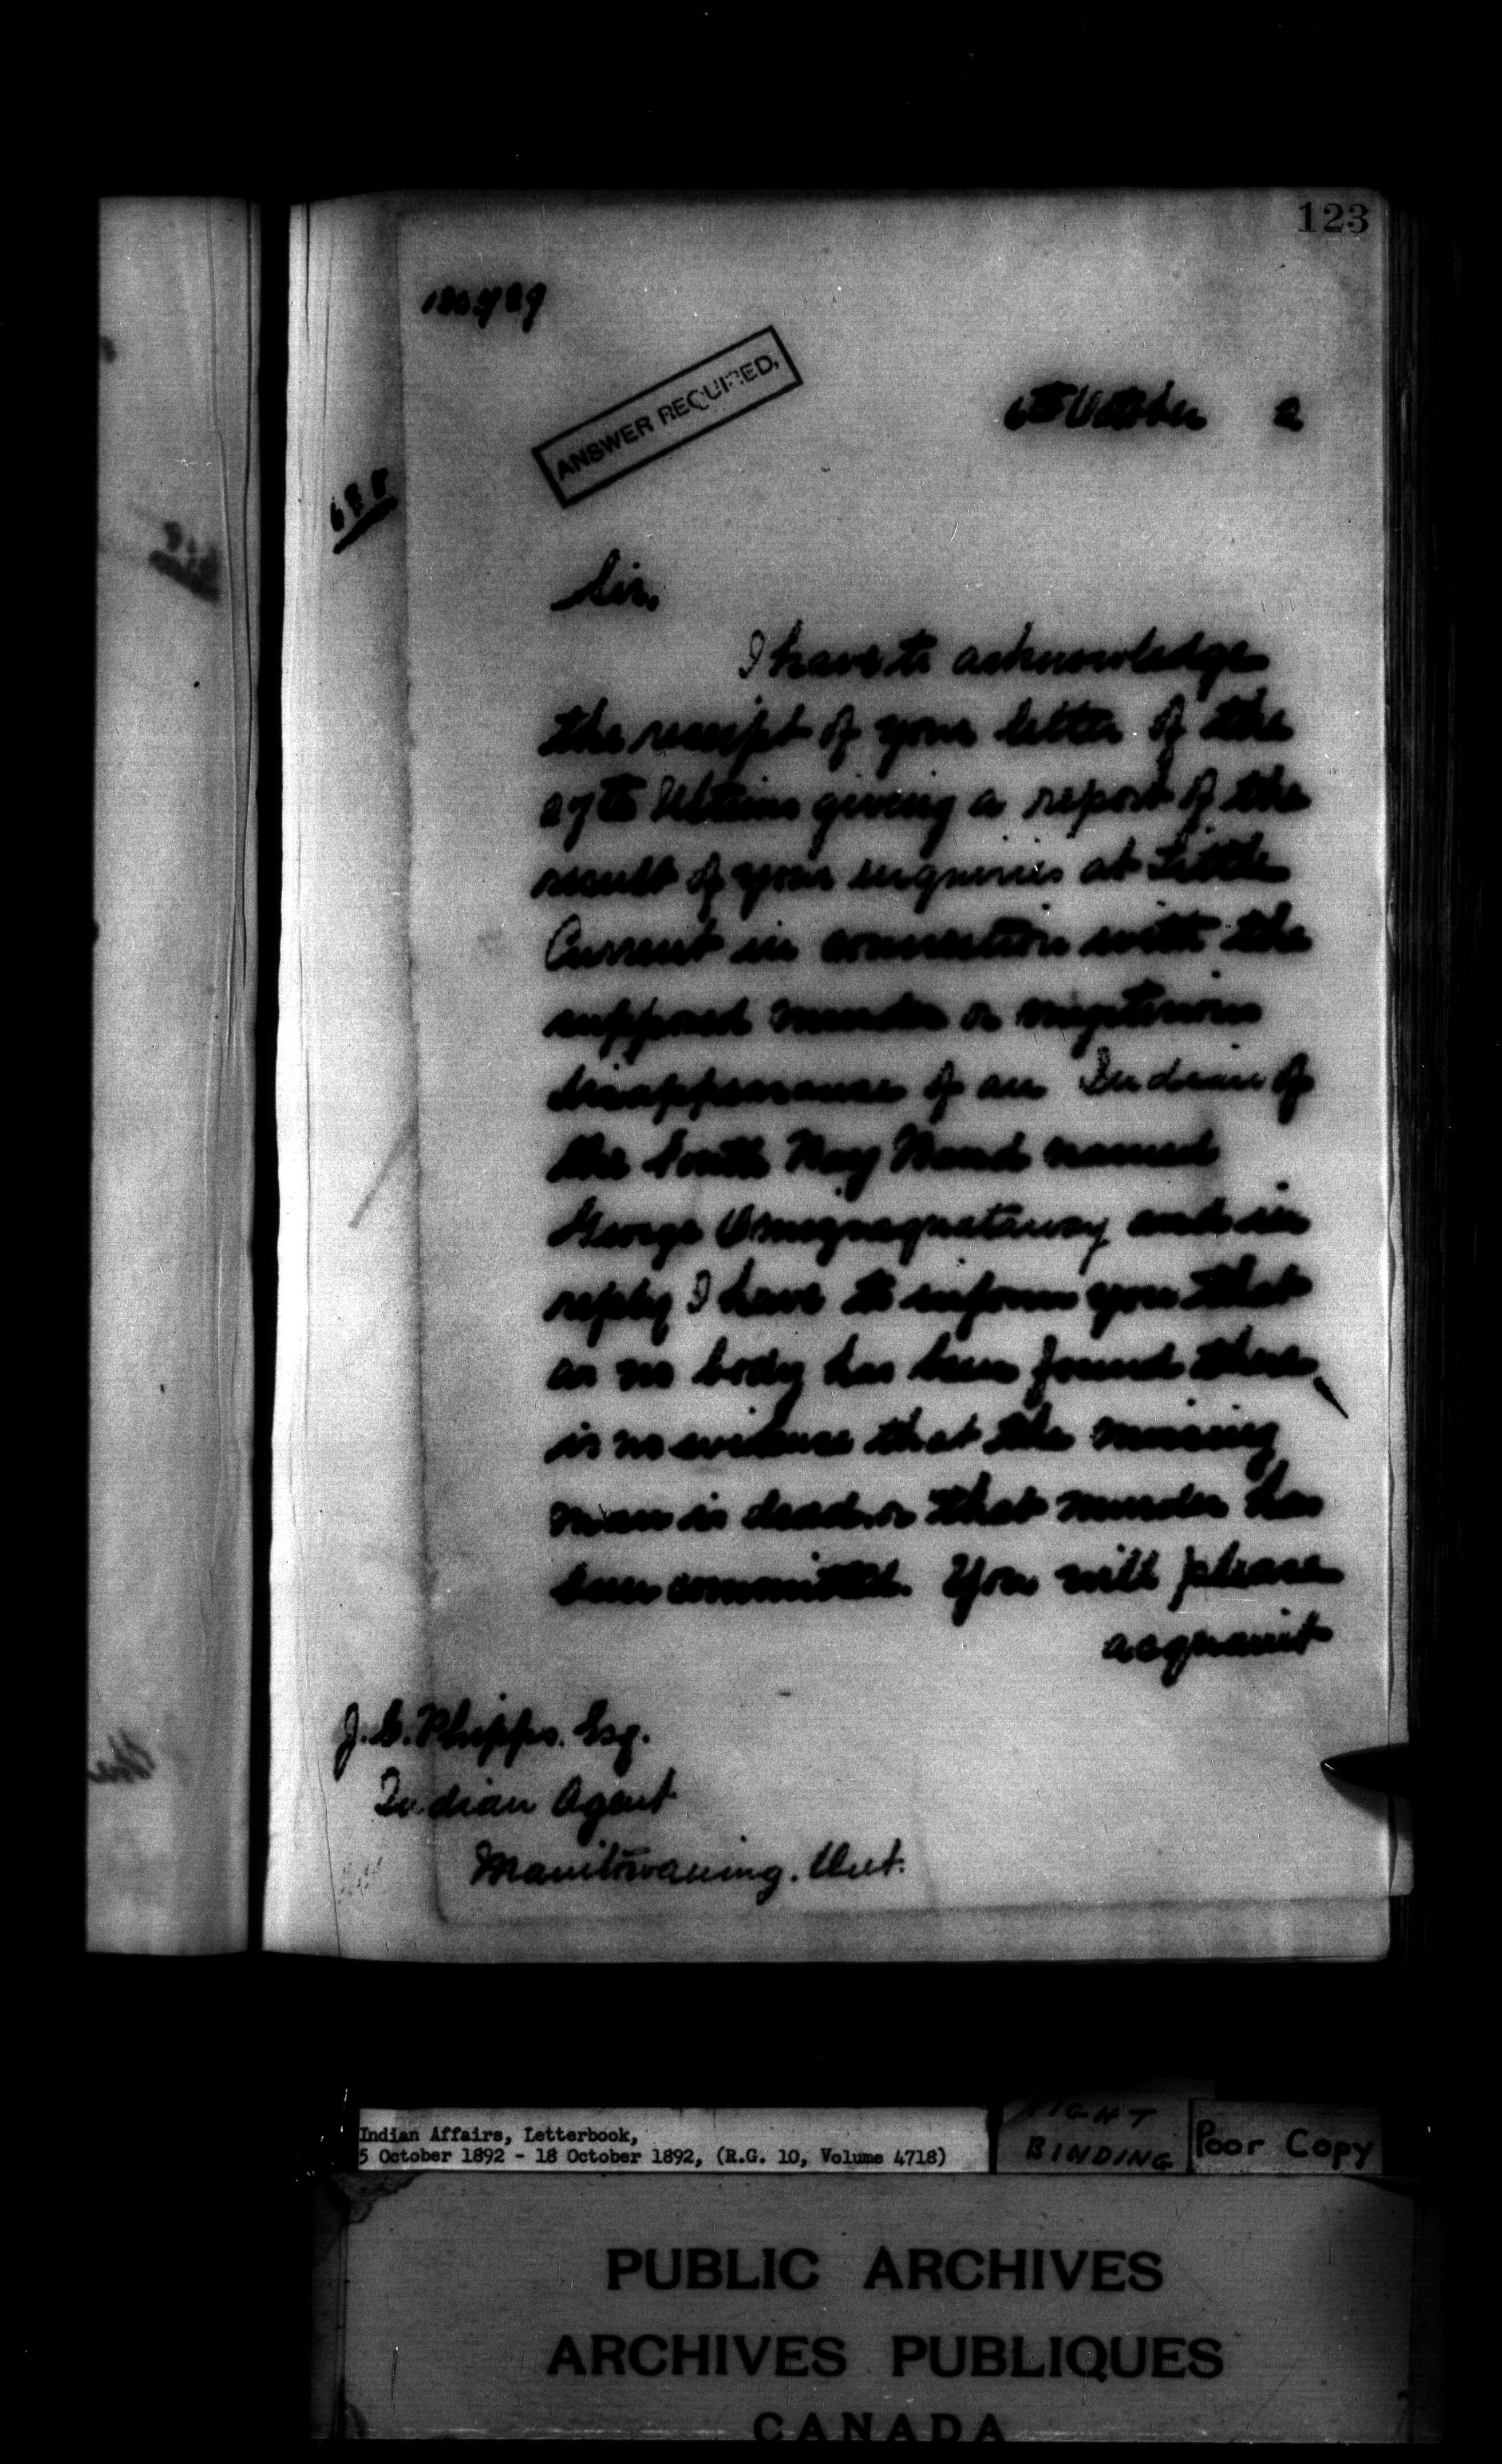 123
6th October 2
ANSWER REQUIRED.
Sir,
I have to acknowledge
the receipt of your letter of the
27th Ultimo giving a report of the
result of your inquiries at Little
Current in connection with the
supposed murder or mysterious
disappearance of an Indian of
the South Bay Band named
George and in
reply I have to inform you that
as no body has been found there
is no evidence that the missing
man is dead or that murder has
been committed. You will please
acquaint
J. C. Phipps. Esq.
Indian Agent
Manitowaning. Ont.
Indian Affairs, Letterbook,
5 October 1892 - 18 October 1892, (R.G. 10, Volume 4718)
TIGHT
BINDING
Poor Copy
PUBLIC ARCHIVES
ARCHIVES PUBLIQUES
CANADA